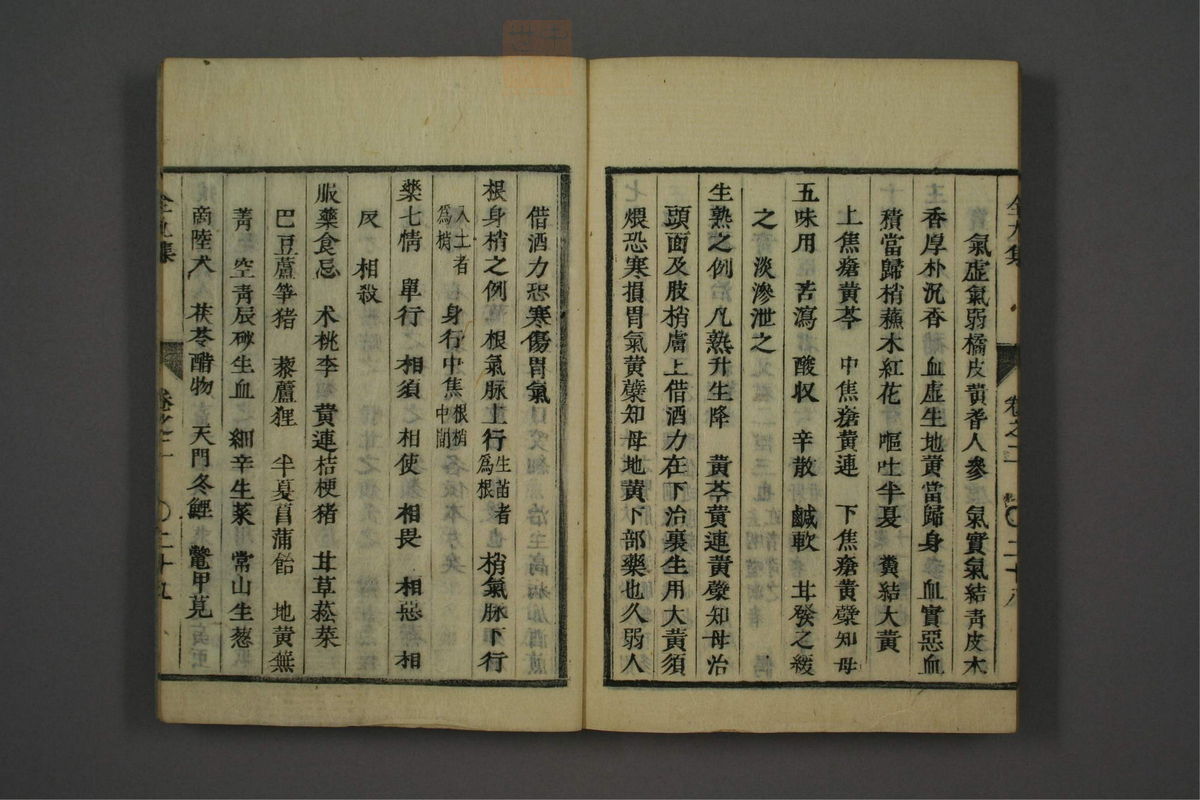 氣虛氣弱橘皮黃耆人參　氣實氣結青皮木
香厚朴沉香　血虛生地黃當歸身　血實惡血
積當歸梢蘇木紅花　嘔吐半夏　糞結大黃
上焦瘡黃芩　中焦瘡黃連　下焦瘡黃蘗知母
五味用　苦瀉　酸収　辛散　鹹軟　甘發之緩
之　淡滲泄之
生熟之例　凡熟升生降　黃芩黃連黃蘗知母治
頭面及肢梢膚上借酒力在下治裏生用大黃須
煨恐寒損胃氣黃蘗知母地黃下部藥也久弱人
卷之二
二十八
借酒力恐寒傷胃氣
根身梢之例　根氣脉上行生苗者爲根　梢氣脉下行
入土者爲梢　身行中焦根梢中間
藥七情　單行　相須　相使　相畏　相惡　相
反　相殺
服藥食忌　术桃李　黃連桔梗猪　甘草菘菜
巴豆蘆笋猪　藜蘆狸　半夏菖蒲飴　地黃蕪
菁　空青辰砂生血　細辛生菜　常山生葱
商陸犬　茯苓醋物　天門冬鯉　鼈甲莧
卷之二
二十九